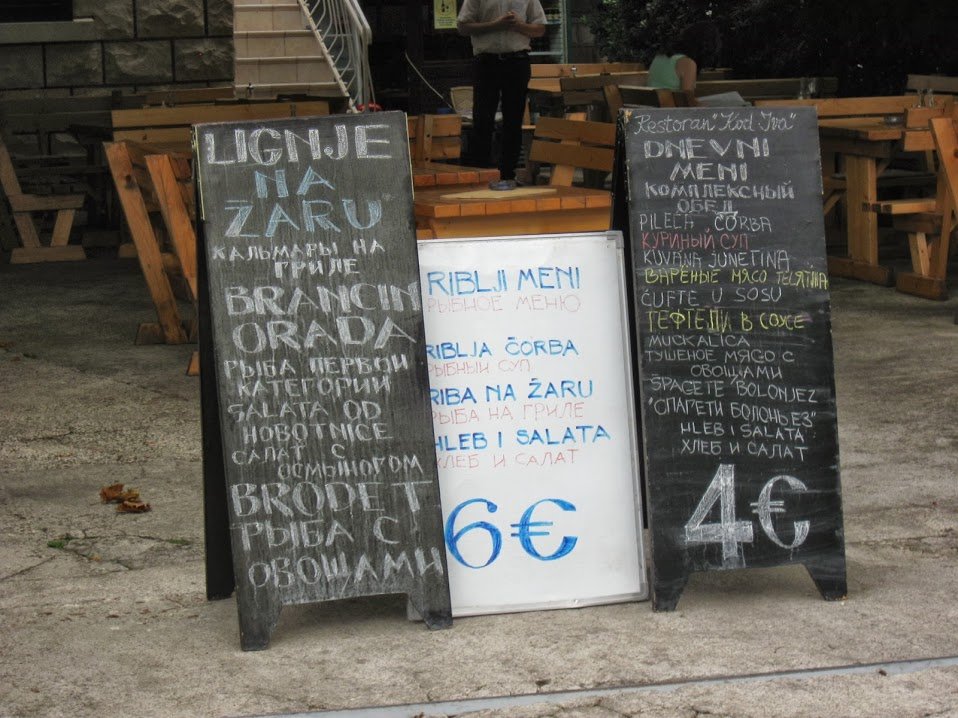 LIGNJE
NA
ŽARU
КАЛЬМАРЫ НА
ГРИЛЕ
BRANCIN
ORADA
РЫБА ПЕРВОЙ
КАТЕГОРИЙ
SALATA OD
HOBOTNICE
САЛАТ С
ОСМЫНОГОМ
BRODET
РЫБА С
ОВОЩАМИ
RIBLJI MENI
РЫБНОЕ МЕНЮ
RIBLJA ČORBA
РЫБНЫЙ СУП
RIBA NA ŽARU
РЫБА НА ГРИЛЕ
HLEB I SALATA
ХЛЕБ И САЛАТ
6€
Restoran "Kod Iva"
DNEVNI
MENI
КОМПЛЕКСНЫЙ
ОБЕД
PILEĆA ČORBA
КУРИНЫЙ СУП
KUVANA JUNETINA
ВАРЕНЫЕ МЯСО ТЕЛЯТИНА
ĆUFTE U SOSU
ТЕФТЕЛИ В СОЖЕ
MUCKALICA
ТУШЕНОЕ МЯСО С
ОВОЩАМИ
ŠPAGETE BOLONJEZ
"СПАГЕТИ БОЛОНЬЕЗ"
HLEB I SALATA
ХЛЕБ И САЛАТ
4€